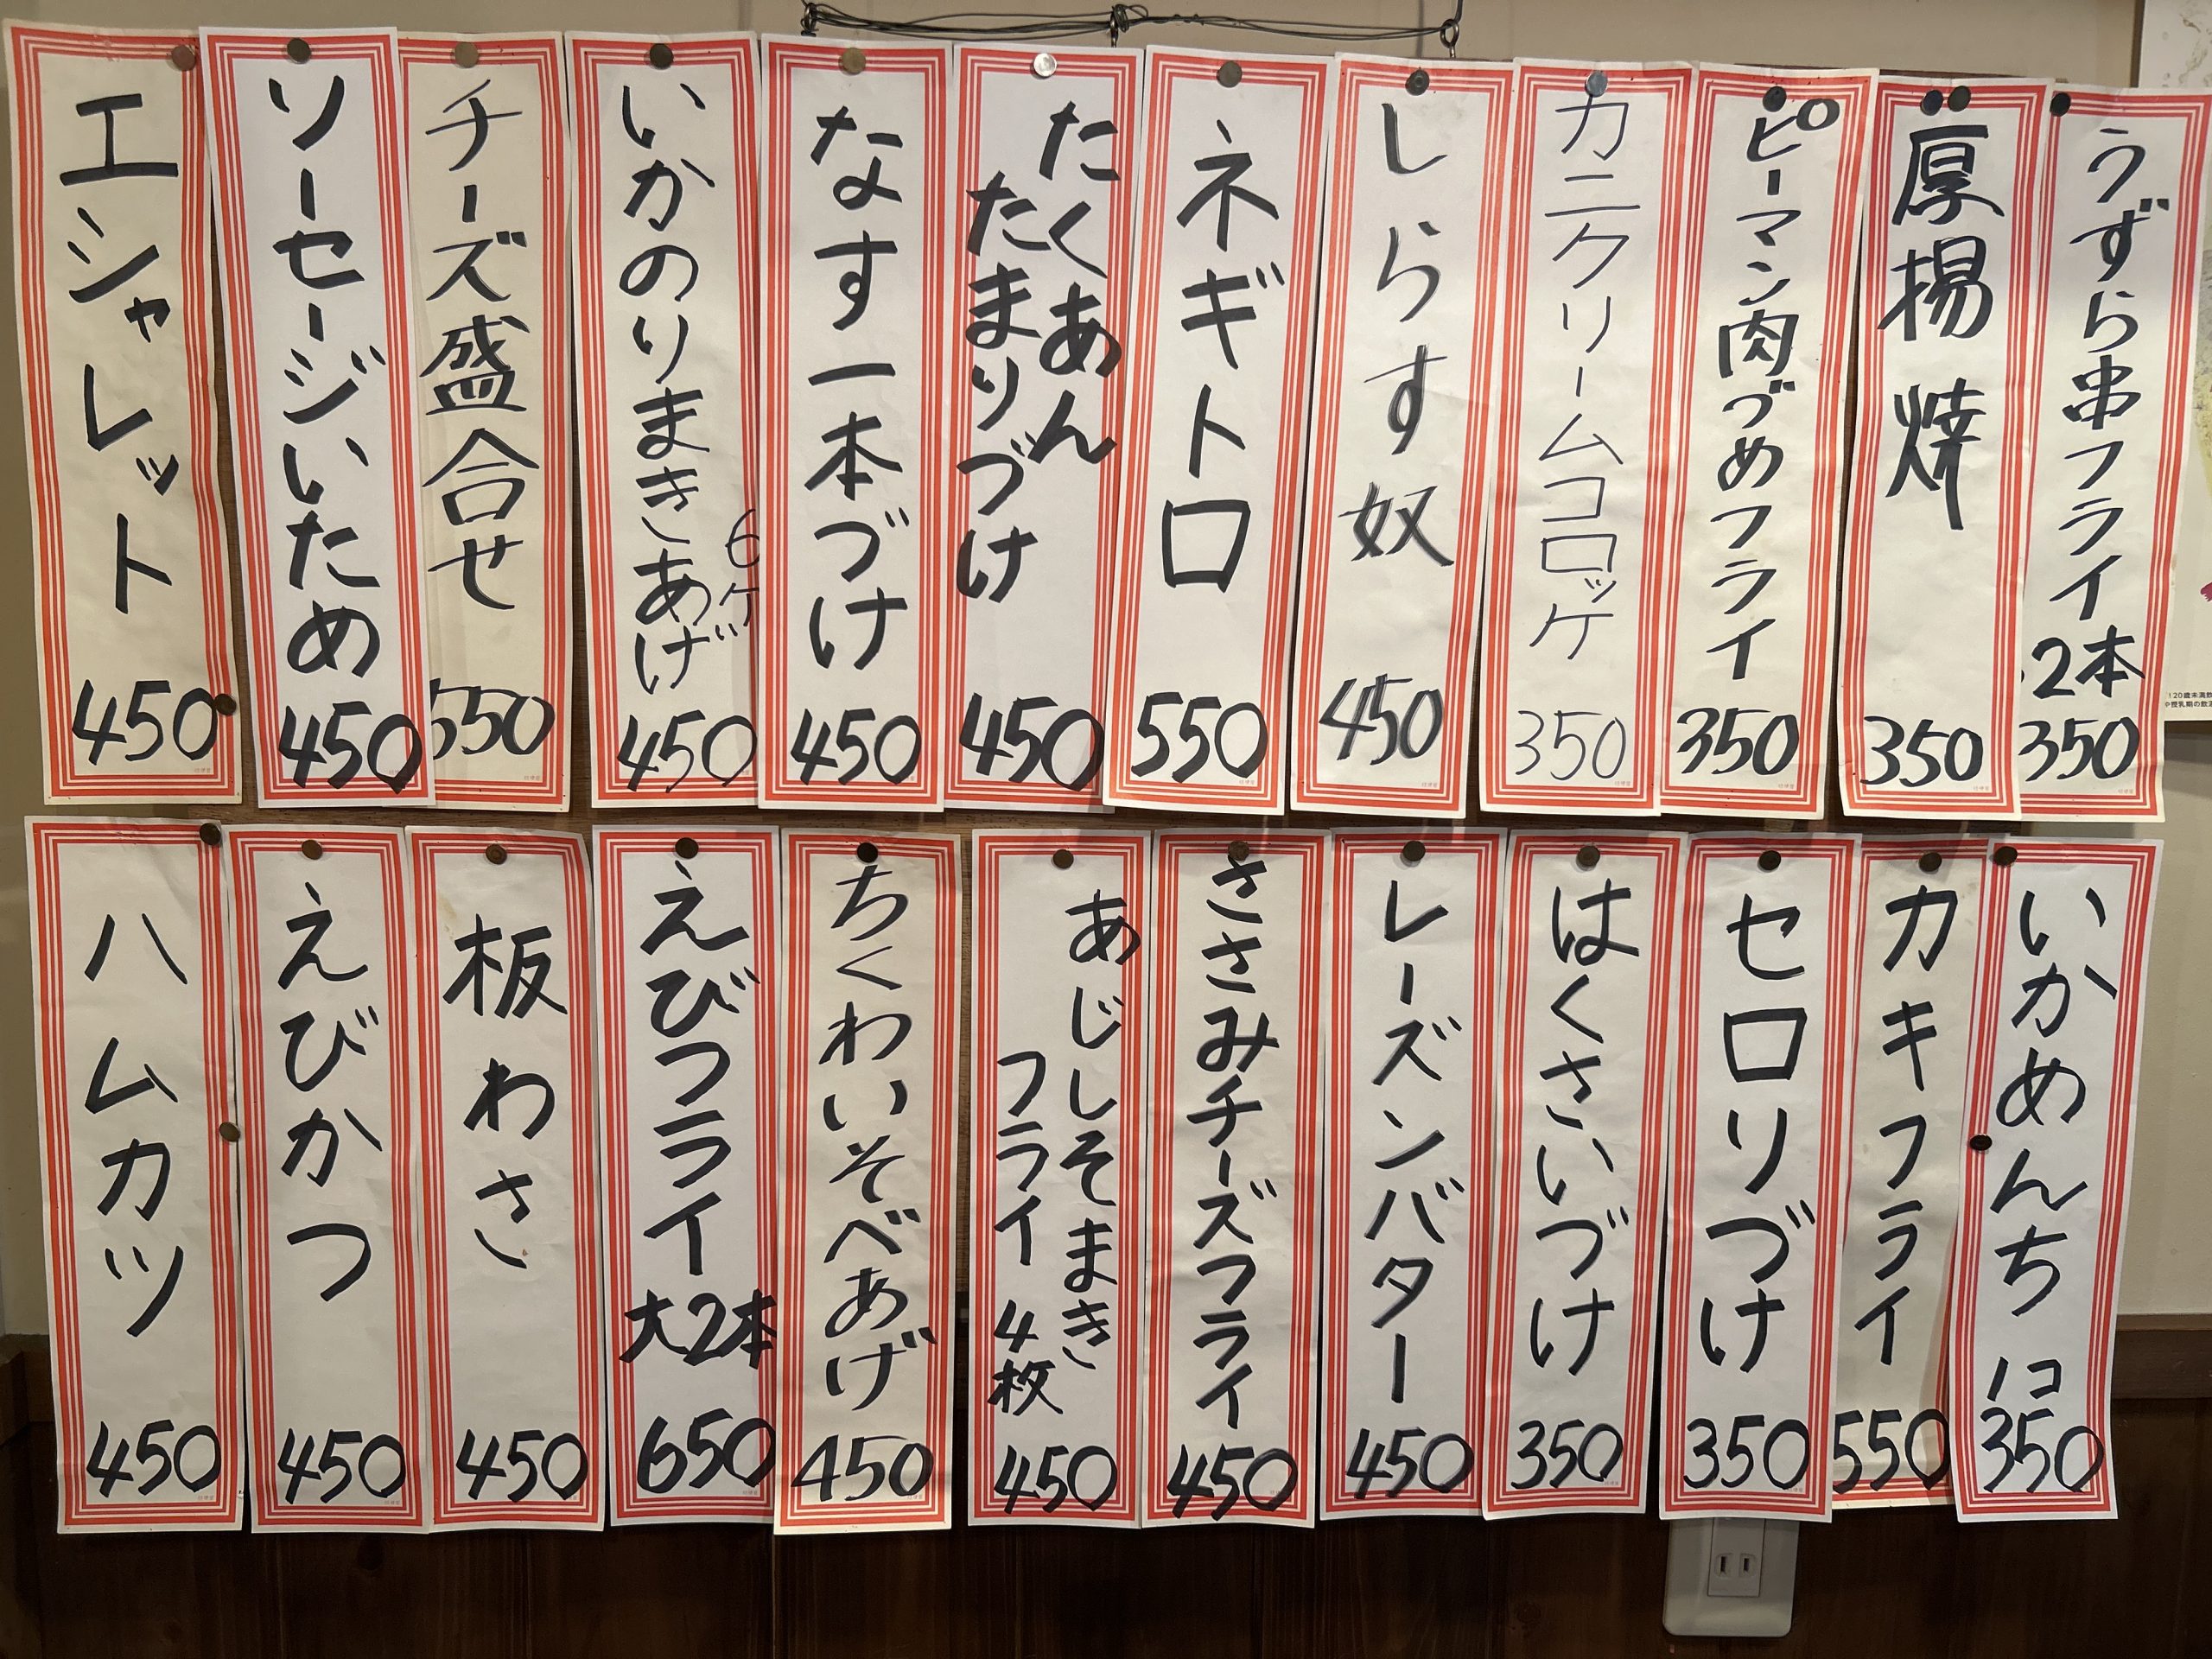 うずら串フライ
2本
350
厚揚焼
350
ピーマン肉づめフライ
350
カニクリームコロッケ
350
しらす奴
450
ネギトロ
550
たくあん
たまりづけ
450
なす一本づけ
450
いかのりまきあげ
6ケ
450
チーズ盛合せ
550
ソーセージいため
450
エシャレット
450
いかめんち
1コ
350
カキフライ
550
セロリづけ
350
はくさいづけ
350
レーズンバター
450
ささみチーズフライ
450
あじしそまき
フライ 4枚
450
ちくわいそべあげ
450
えびフライ
大2本
650
板わさ
450
えびかつ
450
ハムカツ
450